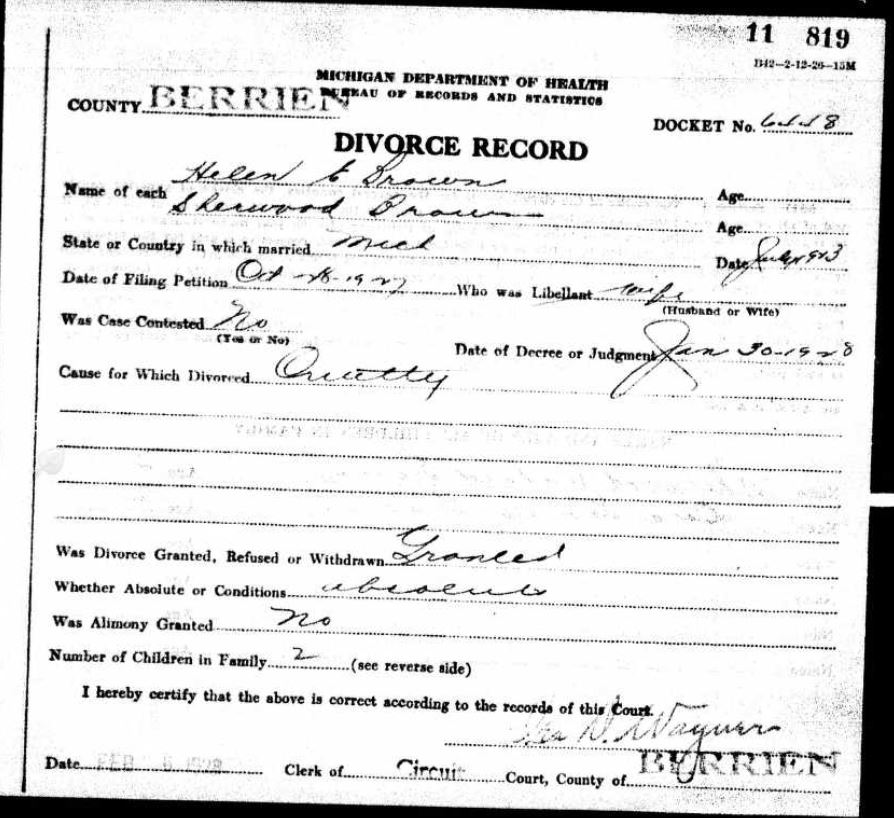 11 819
B42—2-12-26—15M
MICHIGAN DEPARTMENT OF HEALTH
BUREAU OF RECORDS AND STATISTICS
COUNTY BERRIEN
DOCKET No.
DIVORCE RECORD
Name of each Helen E Brown Age
Sherwood Brown Age
State or Country in which married Mich Date July 1923
Date of Filing Petition Oct 1927 Who was Libellant wife
(Husband or Wife)
Was Case Contested No
(Yes or No)
Date of Decree or Judgment Jan 30-1928
Cause for Which Divorced Cruelty
Was Divorce Granted, Refused or Withdrawn Granted
Whether Absolute or Conditions absolute
Was Alimony Granted No
Number of Children in Family 2 (see reverse side)
I hereby certify that the above is correct according to the records of this Court.
Wagner
Date FEB 1928 Clerk of Circuit Court, County of BERRIEN